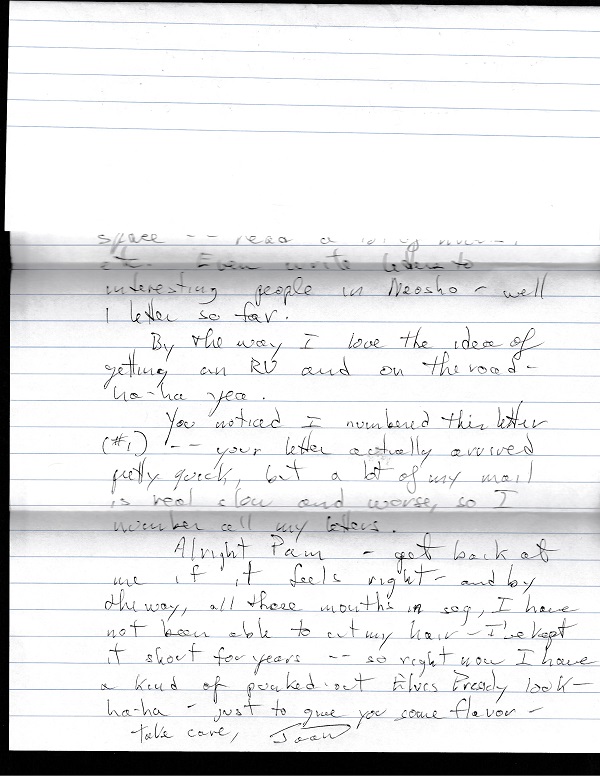 space -- read a lot of
etc. Even write letters to
interesting people in Neosho - well
1 letter so far.
By the way I love the idea of
getting an RV and on the road -
ha-ha yea.
You noticed I numbered this letter
(#1) -- your letter actually arrived
pretty quick, but a lot of my mail
is real slow and worse, so I
number all my letters.
Alright Pam - get back at
me if it feels right - and by
the way, all these months in seg, I have
not been able to cut my hair - I've kept
it short for years -- so right now I have
a kind of -out Elvis Presly look -
ha-ha - just to give you some flavor -
take care,